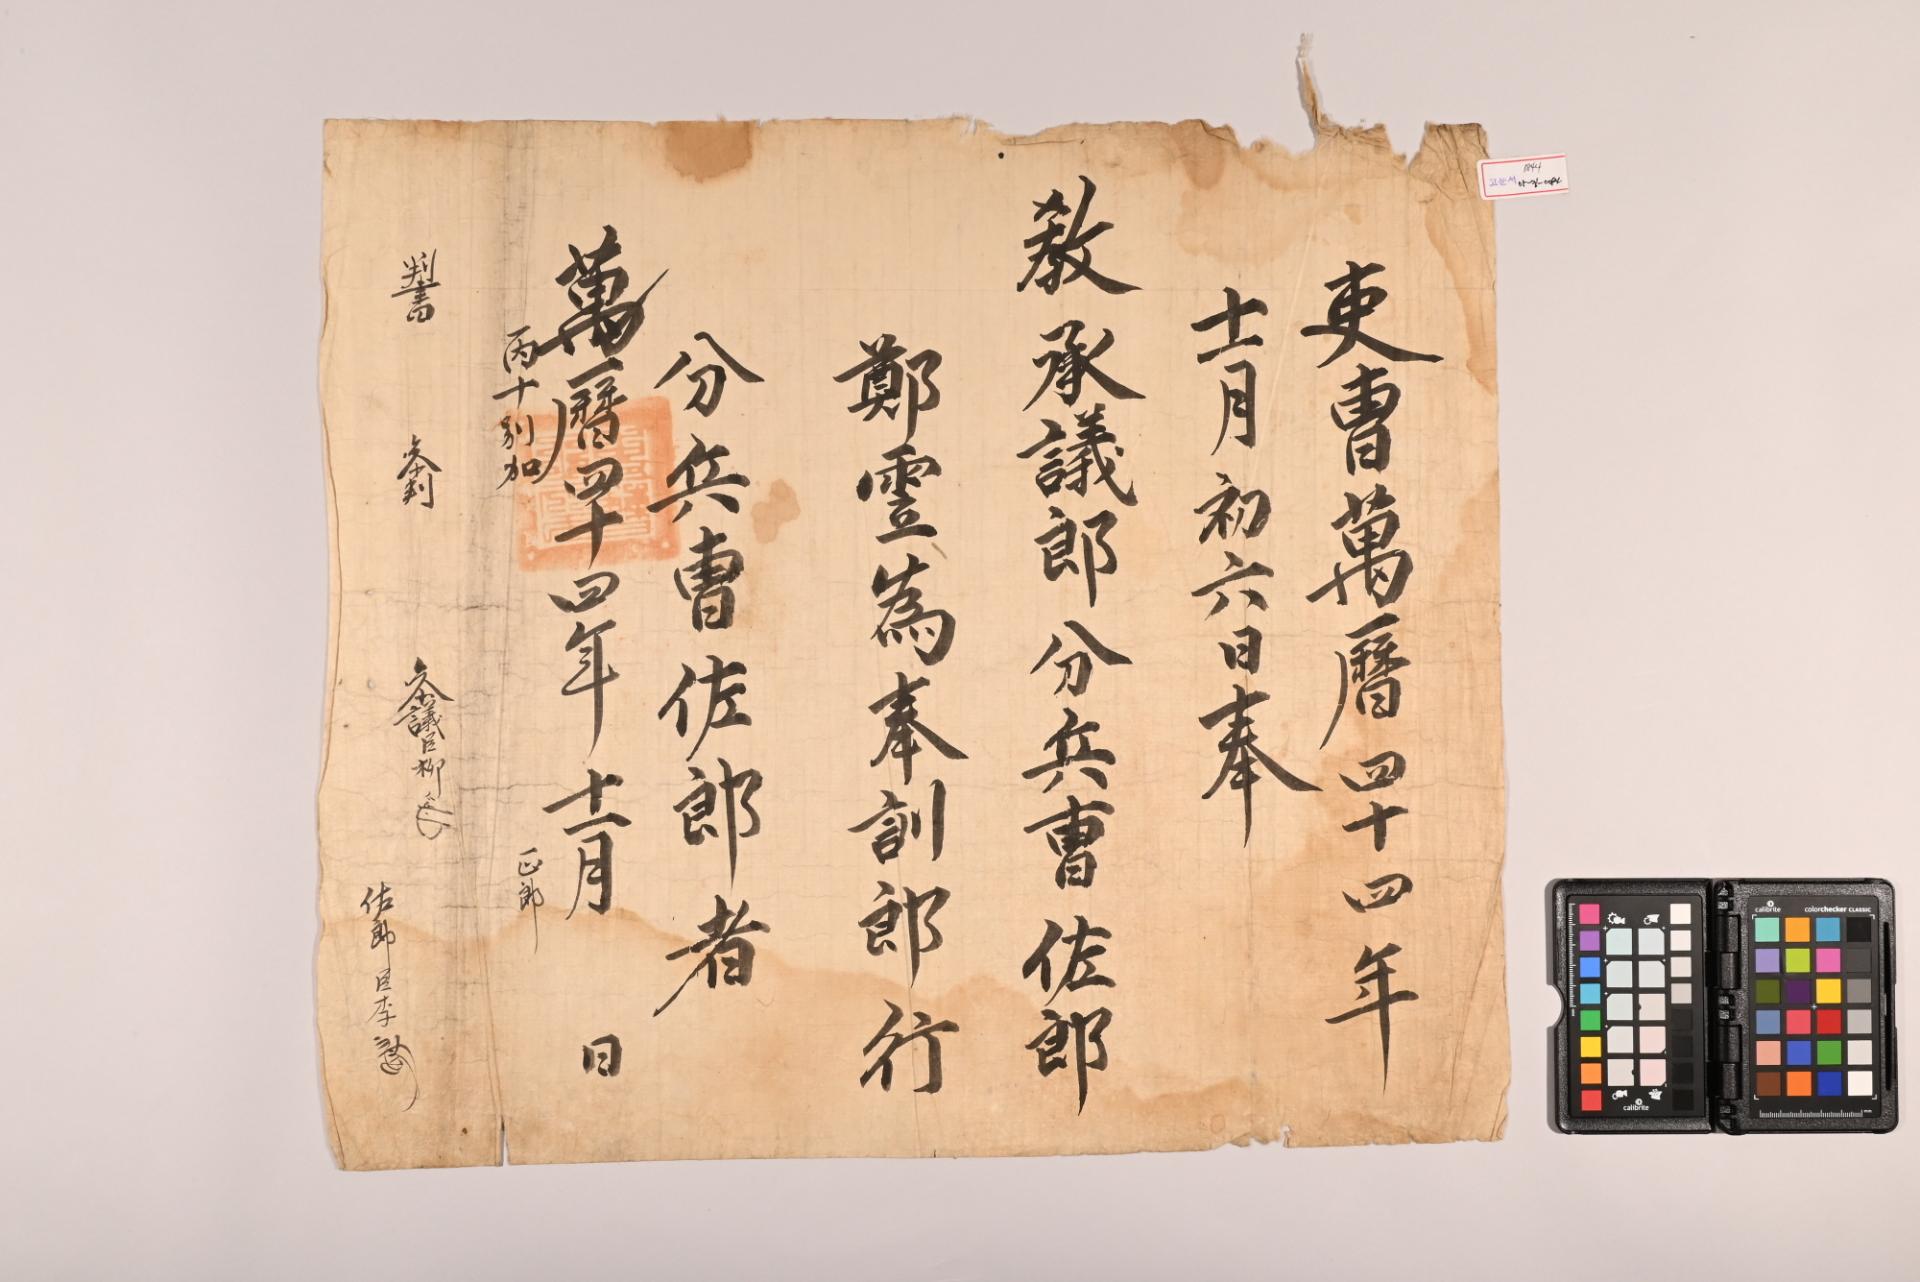 吏曹萬曆四十四年
十一月初六日奉
敎承議郎分兵曹佐郎
鄭雲為奉訓郎行
分兵曹佐郎者
萬曆四十四年十一月 日
丙十別加
正郎
判書
参判
参議臣柳
佐郎臣李
1044
고문서
calibrite
colorchecker CLASSIC
calibrite